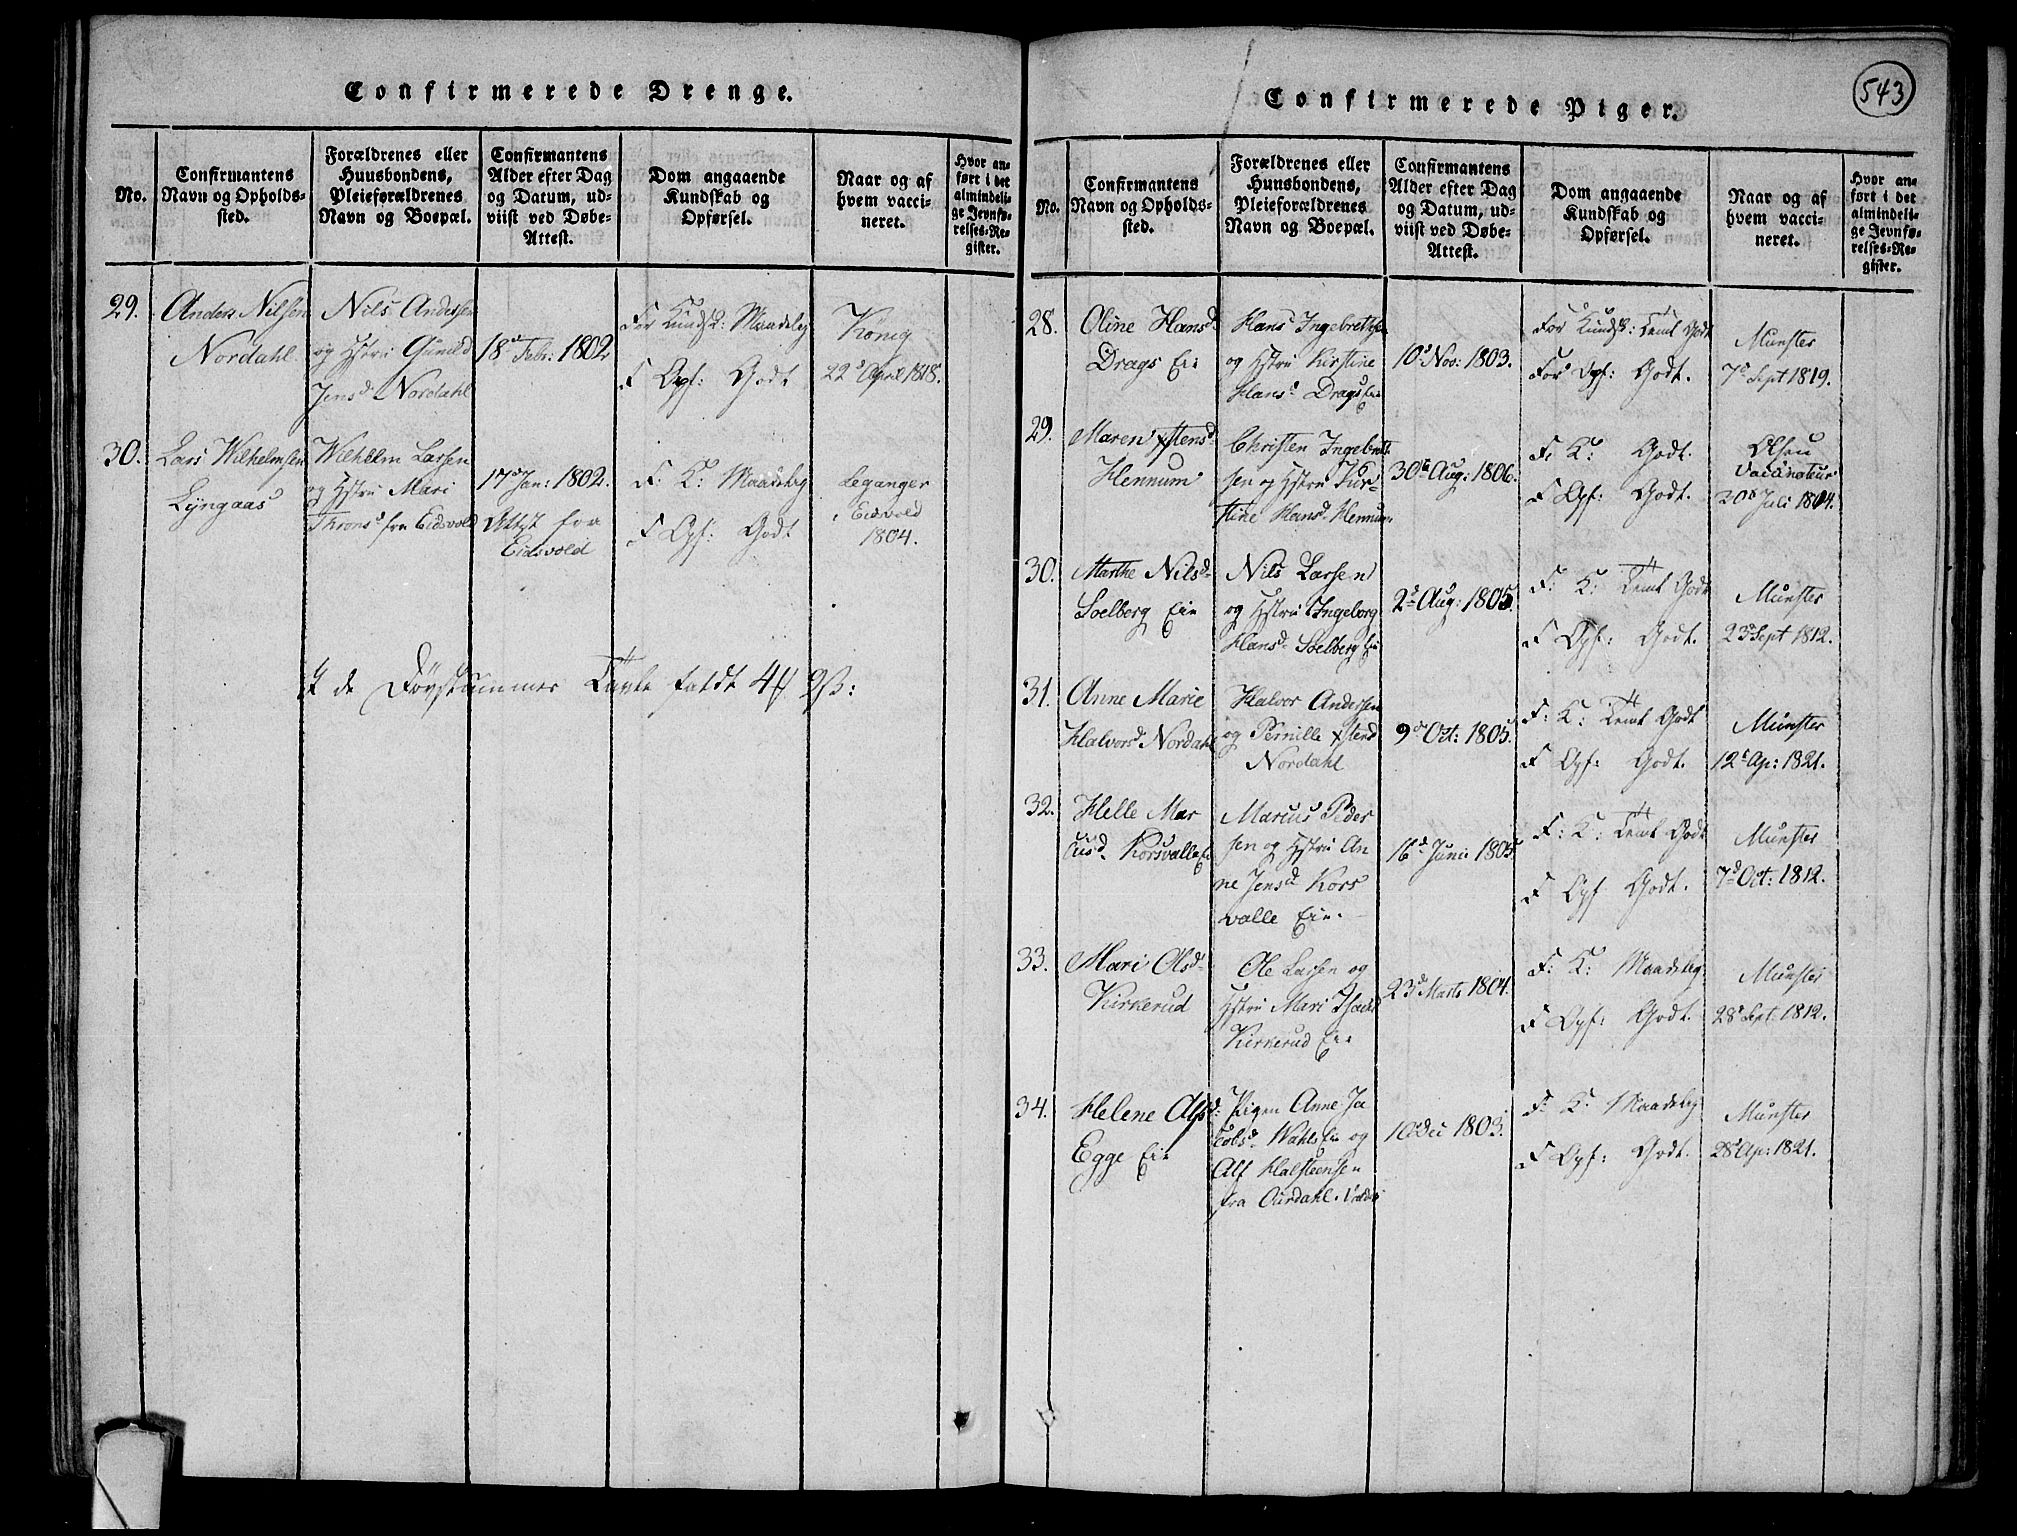 Confirmerede Drenge.
No.
Confirmantens
Navn og Opholds-
sted.
Forældrenes eller
Huusbondens,
Pleieforældrenes
Navn og Boepæl.
Confirmantens
Alder efter Dag
og Datum, ud-
viist ved Døbe-
Attest.
Dom angaaende
Kundskab og
Opførsel.
Naar og af
hvem vacci-
neret.
Hvor an-
ført i det
almindeli-
ge Jevnfø-
relses-Re-
gister.
29.
Anders Nilsen
Nordahl
Nils Andersen
og Hstru Gunild
Jensd Nordahl
18d Febr: 1802
For Kundsk: Maadelig
F Opf: Godt
König
22d April 1818.
30.
Lars Wilhelmsen
Lyngaas
Wilhelm Larsen
og Hstru Mari
Thronsd fra Eidsvold
17d Jan: 1802.
Attest fra
Eidsvold
F: K: Maadelig
F Opf: Godt
Leganger
i Eidsvold
1804.
Tavle faldt
543
Confirmerede Piger.
No.
Confirmantens
Navn og Opholds-
sted.
Forældrenes eller
Huusbondens,
Pleieforældrenes
Navn og Boepæl.
Confirmantens
Alder efter Dag
og Datum, ud-
viist ved Døbe-
Attest.
Dom angaaende
Kundskab og
Opførsel.
Naar og af
hvem vacci-
neret.
Hvor an-
ført i det
almindeli-
ge Jevnfø-
relses-Re-
gister.
28.
Oline Hansd
Drags Eie
Hans Ingebretsen
og Hstru Kirstine
Hansd Drags Eie
10d Nov: 1803.
For Kundsk: Temt Godt
For Opf: Godt.
Munster
7d Sept 1819.
29.
Maren Xstensd
Hennum
Christen Ingebret-
sen og Hstru Kir-
stine Hansd Hennum
30te Aug: 1806.
F: K: Godt.
F Opf: Godt.
Olsen
Vaccinateur
30d Juli 1814.
30.
Marthe Nilsd
Solberg Eie
Nils Larsen
og Hstru Ingeborg
Hansd Solberg Eie
2d Aug: 1805.
F: K: Temt Godt
F Opf: Godt.
Munster
23d Sept 1812.
31.
Anne Marie
Halvorsd Nordahl
Halvor Andersen
og Pernille Xstensd
Nordahl
9d Oct: 1805.
F: K: Temt Godt
F Opf: Godt.
Munster
12d Ap: 1821.
32.
Helle Mar
cusd Korsvalle Eie
Marcus Peder
sen og Hstru An
ne Jensd Kors
valle Eie.
16d Juni 1805
F: K: Temt Godt
F Opf Godt.
Munster
7d Oct: 1812.
33.
Mari Olsd
Kirkerud
Ole Larsen og
Hstru Mari
Kirkerud Eie
23d Marts 1804.
F: K: Maadelig
F Opf: Godt.
Munster
28d Sept 1812.
34.
Helene Alfsd:
Egge Eie
Pigen Anne Ja
cobsd Wahls Eie og
Alf Halsteensen
fra Ourdahl
10d Dec 1803.
F: K: Maadelig
F Opf: Godt.
Munster
28d Ap: 1821.